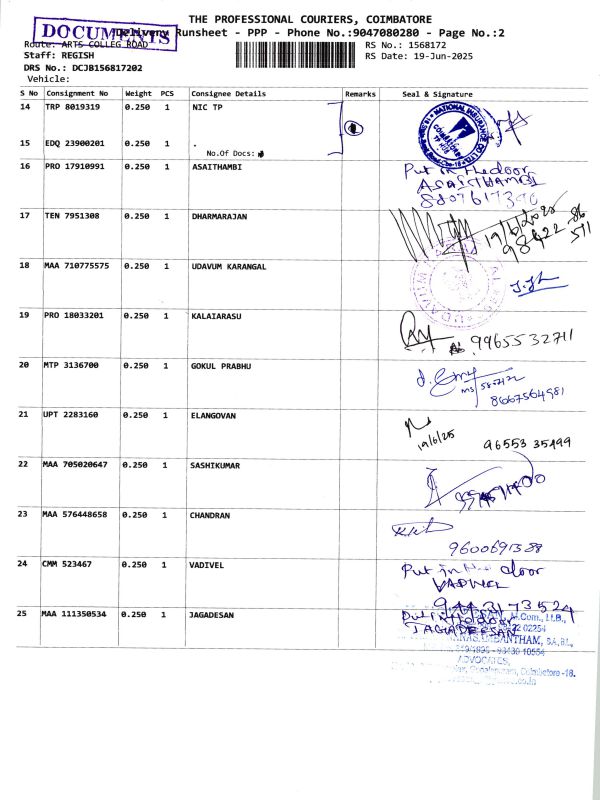 THE PROFESSIONAL COURIERS, COIMBATORE
DOCUMENTS
Delivery Runsheet - PPP - Phone No.:9047080280 - Page No.:2
Route: ARTS COLLEG ROAD
RS No.: 1568172
Staff: REGISH
RS Date: 19-Jun-2025
DRS No.: DCJB156817202
Vehicle:
S No Consignment No Weight PCS Consignee Details Remarks Seal & Signature
14 TRP 8019319 0.250 1 NIC TP
NATIONAL INSURANCE CO LTD
15 EDQ 23900201 0.250 1 .
No.Of Docs:
16 PRO 17910991 0.250 1 ASAITHAMBI
Put in the door
ASAITHAMBI
8807617390
17 TEN 7951308 0.250 1 DHARMARAJAN
19/6/2025
98422 86
511
18 MAA 710775575 0.250 1 UDAVUM KARANGAL
19 PRO 18033201 0.250 1 KALAIARASU
9965532711
20 MTP 3136700 0.250 1 GOKUL PRABHU
8667564981
21 UPT 2283160 0.250 1 ELANGOVAN
19/6/25
96553 35499
22 MAA 705020647 0.250 1 SASHIKUMAR
23 MAA 576448658 0.250 1 CHANDRAN
9600691388
24 CMM 523467 0.250 1 VADIVEL
Put in door
VADIVEL
9443173524
25 MAA 111350534 0.250 1 JAGADESAN
Put in the door
JAGADEESAN
M.Com., LL.B.,
02254
BANTHAM, B.A.,B.L.,
98430 10554
ADVOCATES,
Coimbatore -18.